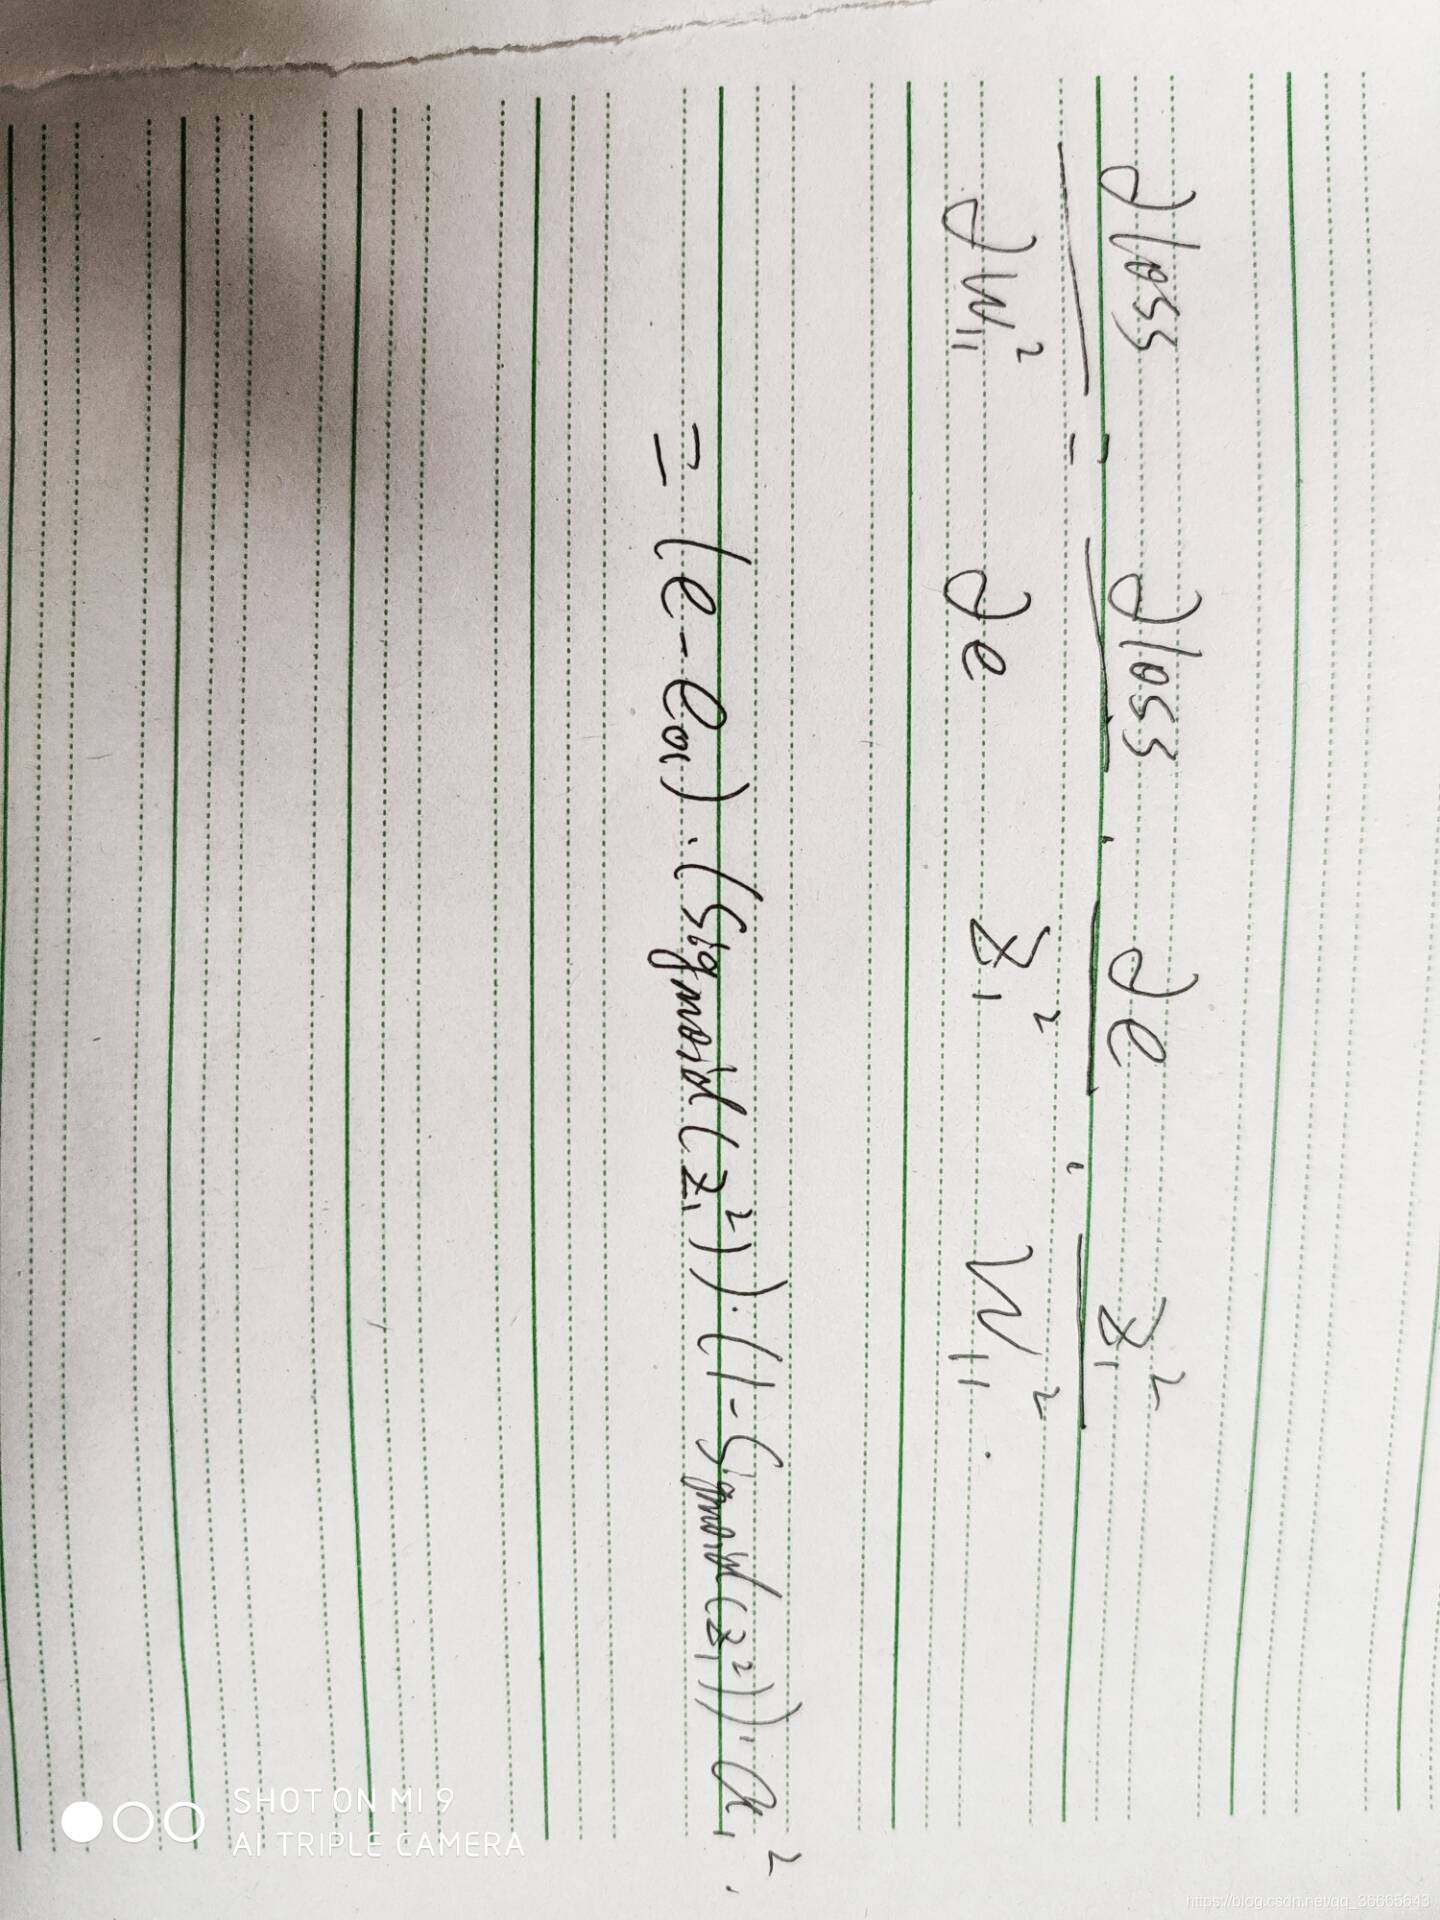 ∂loss/∂w₁₁² = ∂loss/∂e · ∂e/z₁² · z₁²/w₁₁² .
= (e-e₀₁)·(Sigmoid(z₁²))·(1-Sigmoid(z₁²))·a₁² .
SHOT ON MI 9
AI TRIPLE CAMERA
https://blog.csdn.net/qq_36665643